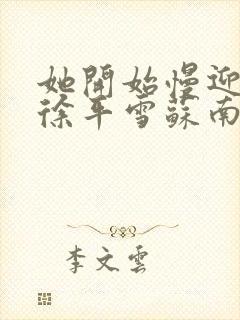 她開始慢迎
徐平雪蘇南
李文雲